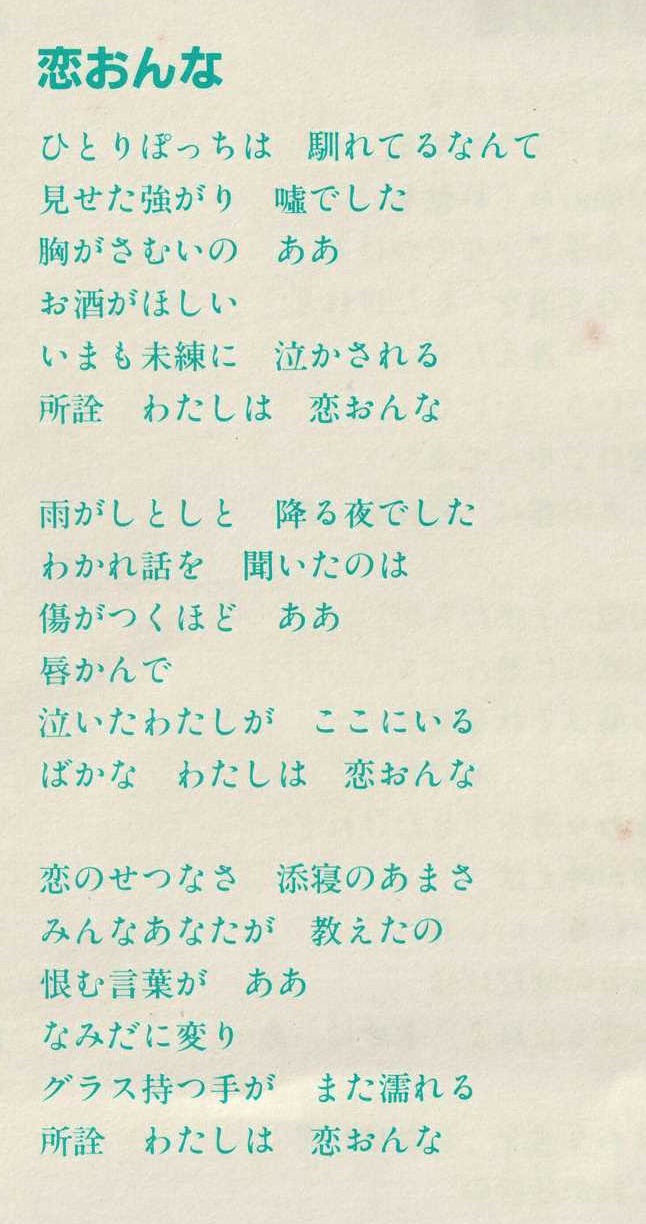 恋おんな
ひとりぽっちは　馴れてるなんて
見せた強がり　嘘でした
胸がさむいの　ああ
お酒がほしい
いまも未練に　泣かされる
所詮　わたしは　恋おんな
雨がしとしと　降る夜でした
わかれ話を　聞いたのは
傷がつくほど　ああ
唇かんで
泣いたわたしが　ここにいる
ばかな　わたしは　恋おんな
恋のせつなさ　添寝のあまさ
みんなあなたが　教えたの
恨む言葉が　ああ
なみだに変り
グラス持つ手が　また濡れる
所詮　わたしは　恋おんな